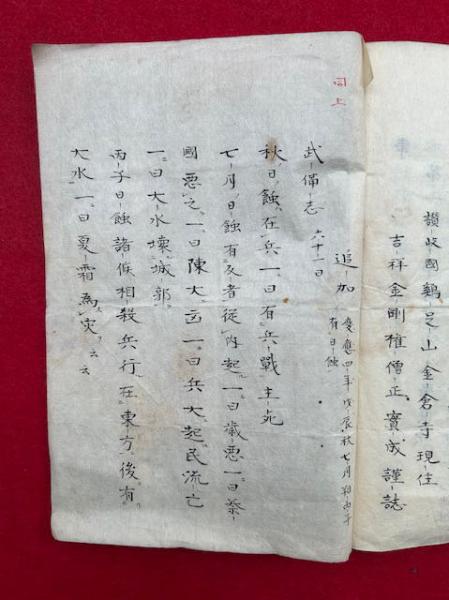 讃岐國鶏足山金倉寺現住
吉祥金剛権僧正實成謹誌
同上
追加 慶應四年戊辰秋七月朔丙子
有日蝕
武備志 六十一曰
秋日蝕在兵一曰有兵戰主死
七月日蝕有反者從内起一曰歳悪一曰秦
國悪之一曰陳大
一曰兵大起民流亡
一曰大水壊城郭
丙子日蝕諸侯相殺兵行在東方後有
大水一曰夏霜為災云云